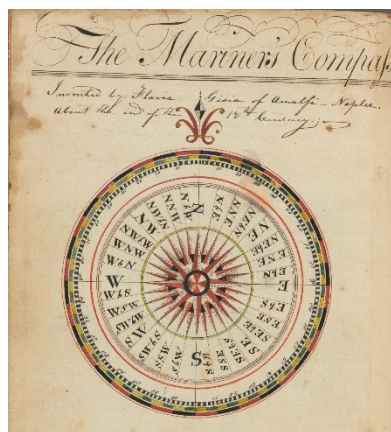 The Mariner's Compass
Invented by Flavio Gioia of Amalfi - Naples
about the end of the 13th Century
N
N b E
NNE
NE b N
NE
NE b E
ENE
E b N
E
E b S
ESE
SE b E
SE
SE b S
SSE
S b E
S
S b W
SSW
SW b S
SW
SW b W
WSW
W b S
W
W b N
WNW
NW b W
NW
NW b N
NNW
N b W